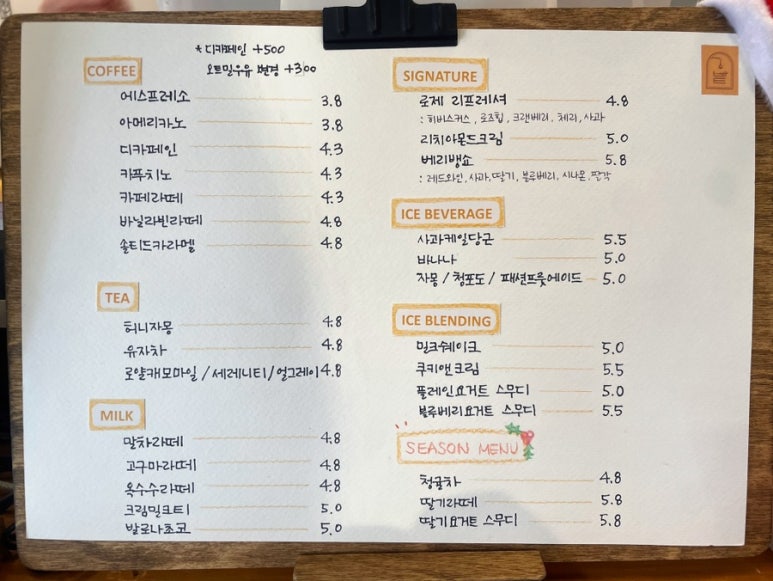 * 디카페인 +500
오트밀우유 변경 +300
COFFEE
에스프레소 3.8
아메리카노 3.8
디카페인 4.3
카푸치노 4.3
카페라떼 4.3
바닐라빈라떼 4.8
솔티드카라멜 4.8
TEA
허니자몽 4.8
유자차 4.8
로얄캐모마일 / 세레니티 / 얼그레이 4.8
MILK
말차라떼 4.8
고구마라떼 4.8
옥수수라떼 4.8
크림밀크티 5.0
발로나초코 5.0
SIGNATURE
로제 리프레셔 4.8
: 히비스커스, 로즈힙, 크랜베리, 체리, 사과
리치아몬드크림 5.0
베리뱅쇼 5.8
: 레드와인, 사과, 딸기, 블루베리, 시나몬, 팔각
ICE BEVERAGE
사과케일당근 5.5
바나나 5.0
자몽 / 청포도 / 패션프룻에이드 5.0
ICE BLENDING
밀크쉐이크 5.0
쿠키앤크림 5.5
플레인요거트 스무디 5.0
블루베리요거트 스무디 5.5
SEASON MENU
청귤차 4.8
딸기라떼 5.8
딸기요거트 스무디 5.8